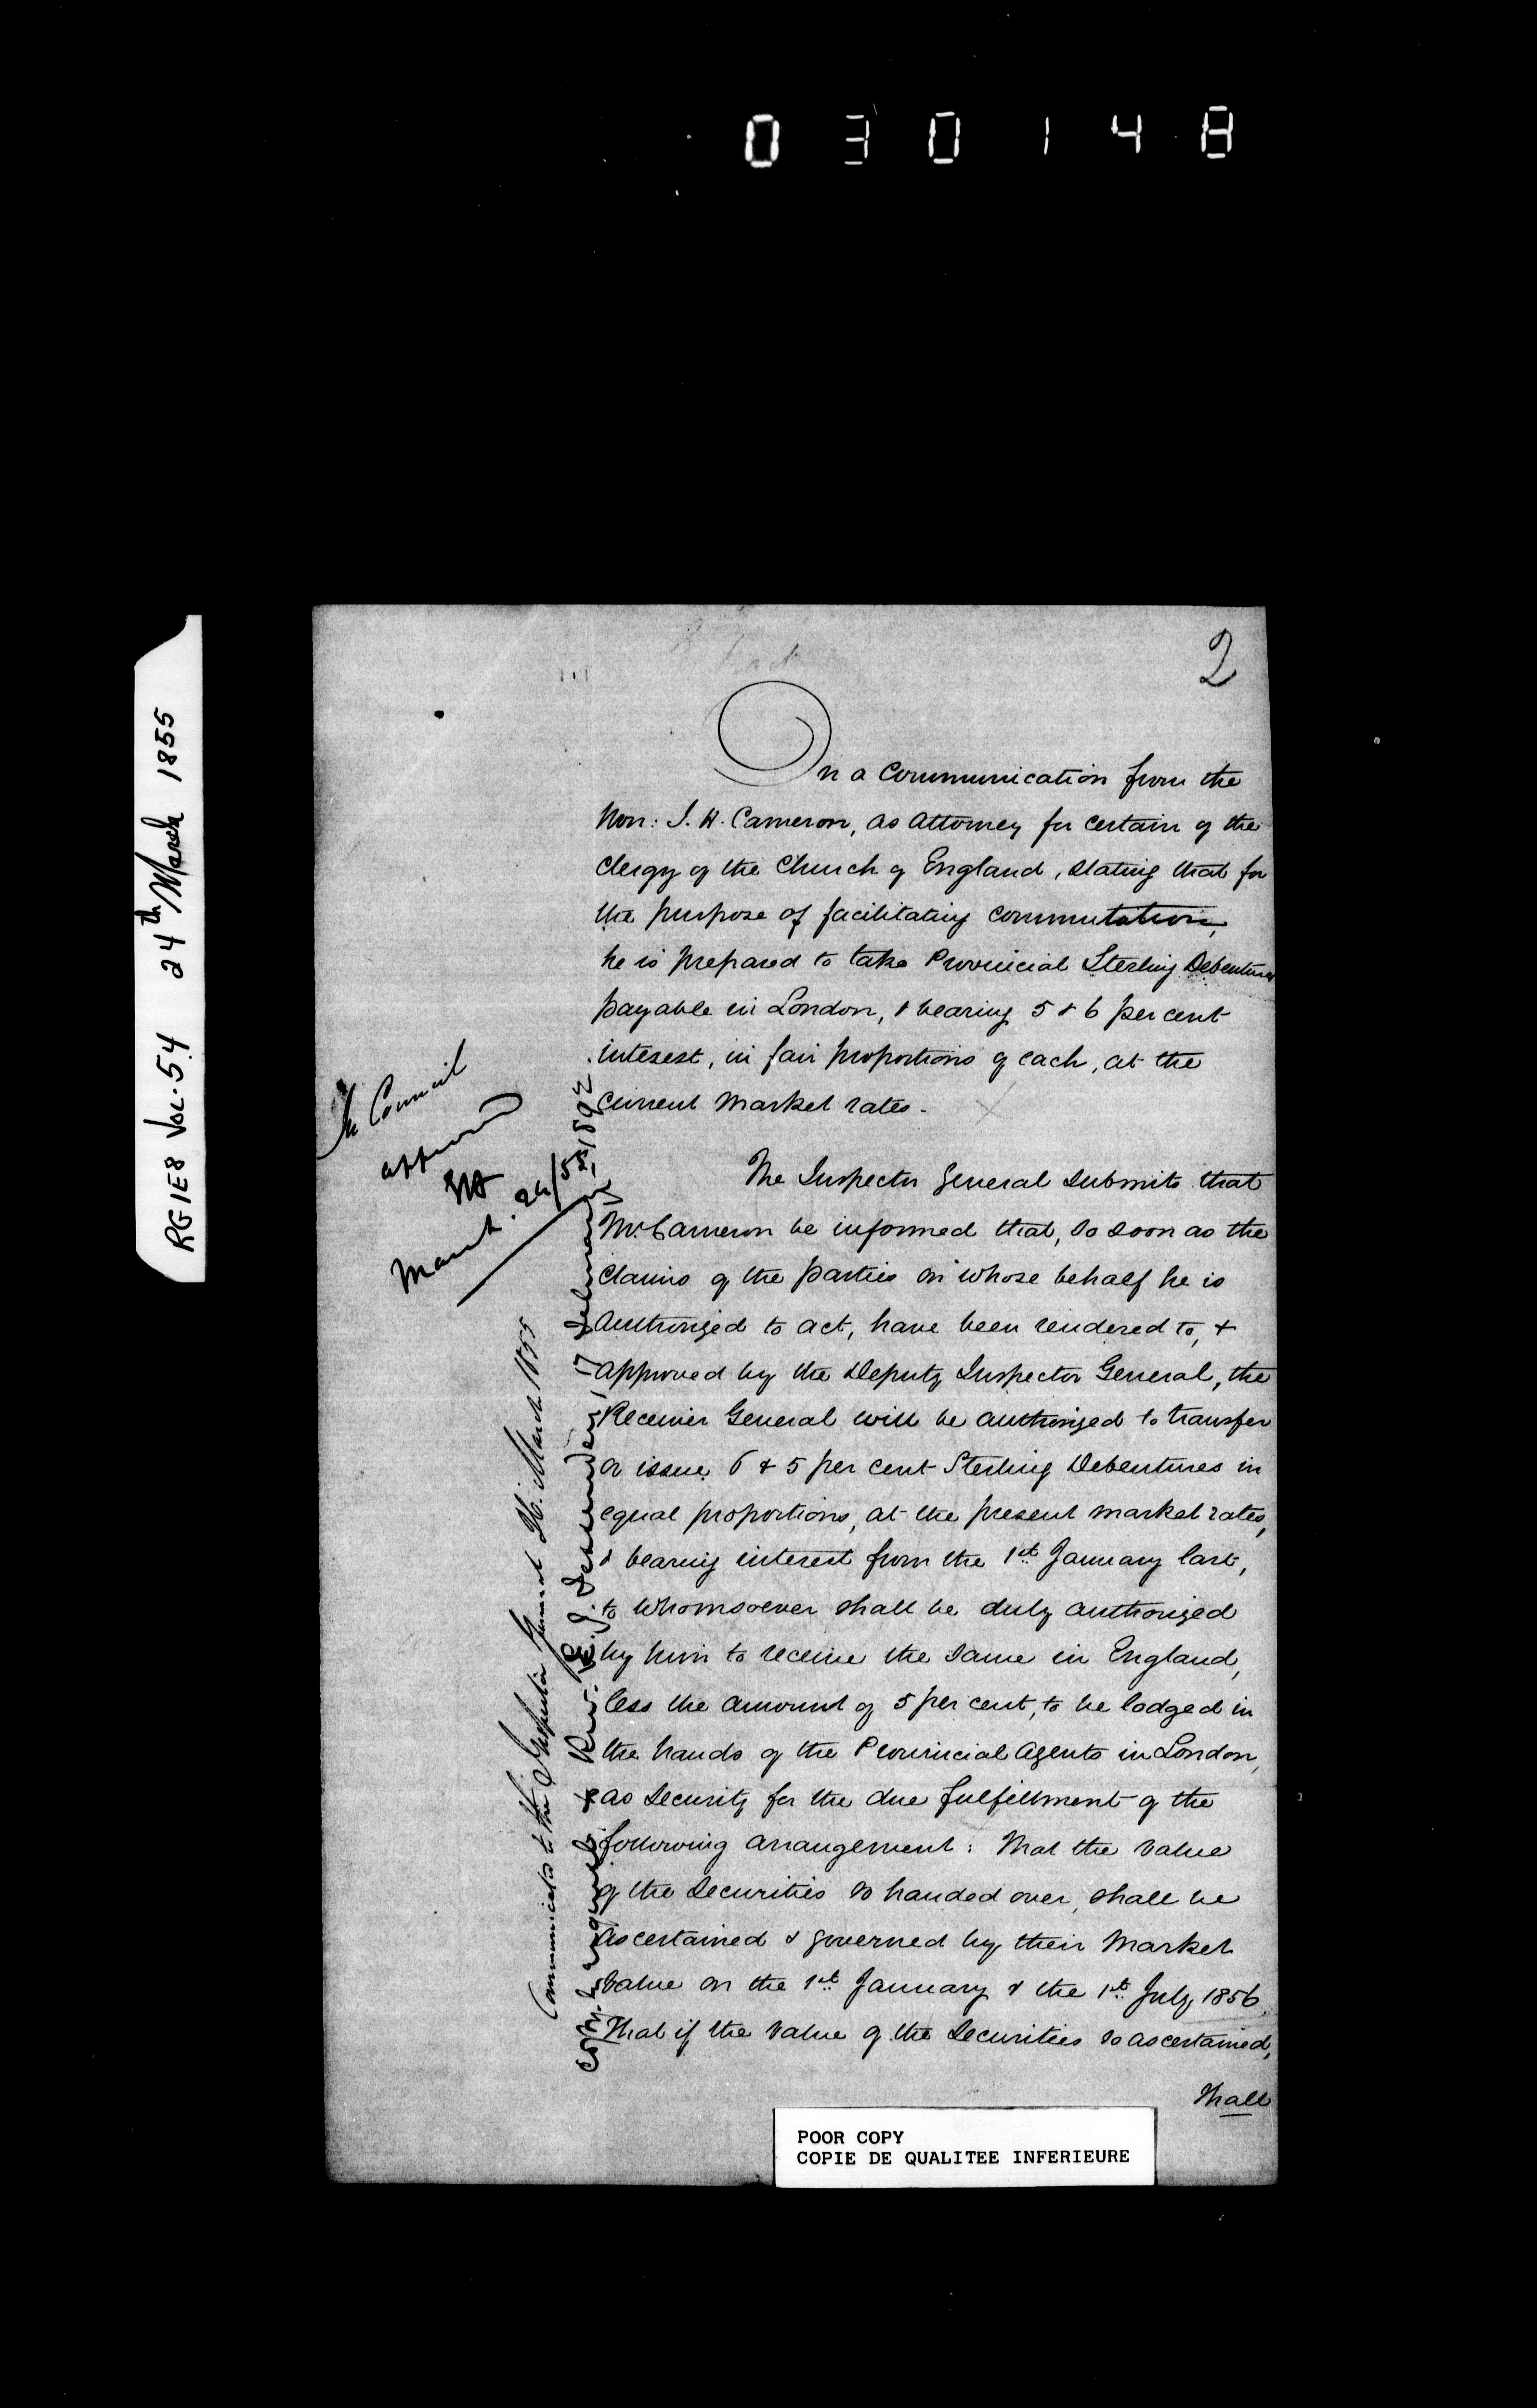 030148
RG1E8 Vol. 54 24th March 1855
2
On a Communication from the
Hon: J. H. Cameron, as Attorney for certain of the
Clergy of the Church of England, stating that for
the purpose of facilitating commutation,
he is prepared to take Provincial Sterling Debentures
payable in London, & bearing 5 & 6 per cent
interest, in fair proportions of each, at the
current market rates.
The Inspector General submits that
Mr. Cameron be informed that, so soon as the
claims of the parties on whose behalf he is
authorized to act, have been rendered to, &
approved by the Deputy Inspector General, the
Receiver General will be authorized to transfer
or issue 6 & 5 per cent Sterling Debentures in
equal proportions, at the present market rates,
& bearing interest from the 1st January last,
to whomsoever shall be duly authorized
by him to receive the same in England,
less the amount of 5 per cent, to be lodged in
the hands of the Provincial Agents in London,
as security for the due fulfillment of the
following arrangement: That the value
of the securities so handed over, shall be
ascertained & governed by their market
value on the 1st January & the 1st July, 1856.
That if the value of the securities so ascertained,
shall
In Council
approved
March 24/55
Communicated to the Inspector General 26. March 1855
Rev. E. J. 17 February 1892.
POOR COPY
COPIE DE QUALITEE INFERIEURE